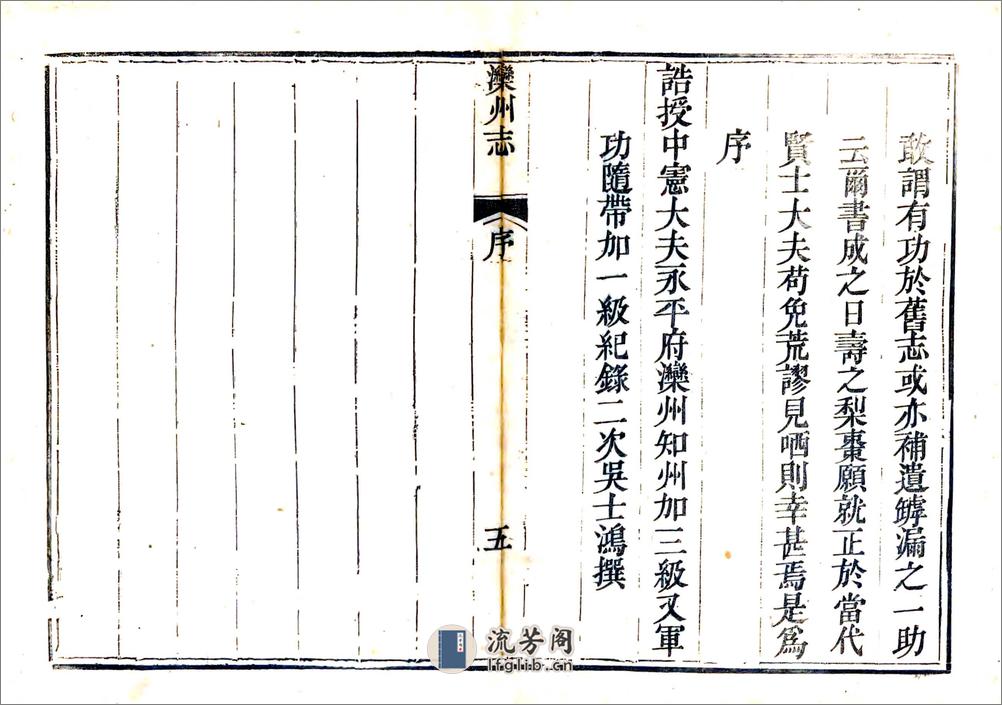 敢謂有功於舊志或亦補遺罅漏之一助
云爾書成之日壽之梨棗願就正於當代
賢士大夫苟免荒謬見哂則幸甚焉是爲
序
誥授中憲大夫永平府灤州知州加三級又軍
功隨帶加一級紀錄二次吳士鴻撰
灤州志
序
五
流芳阁
lfglib.cn